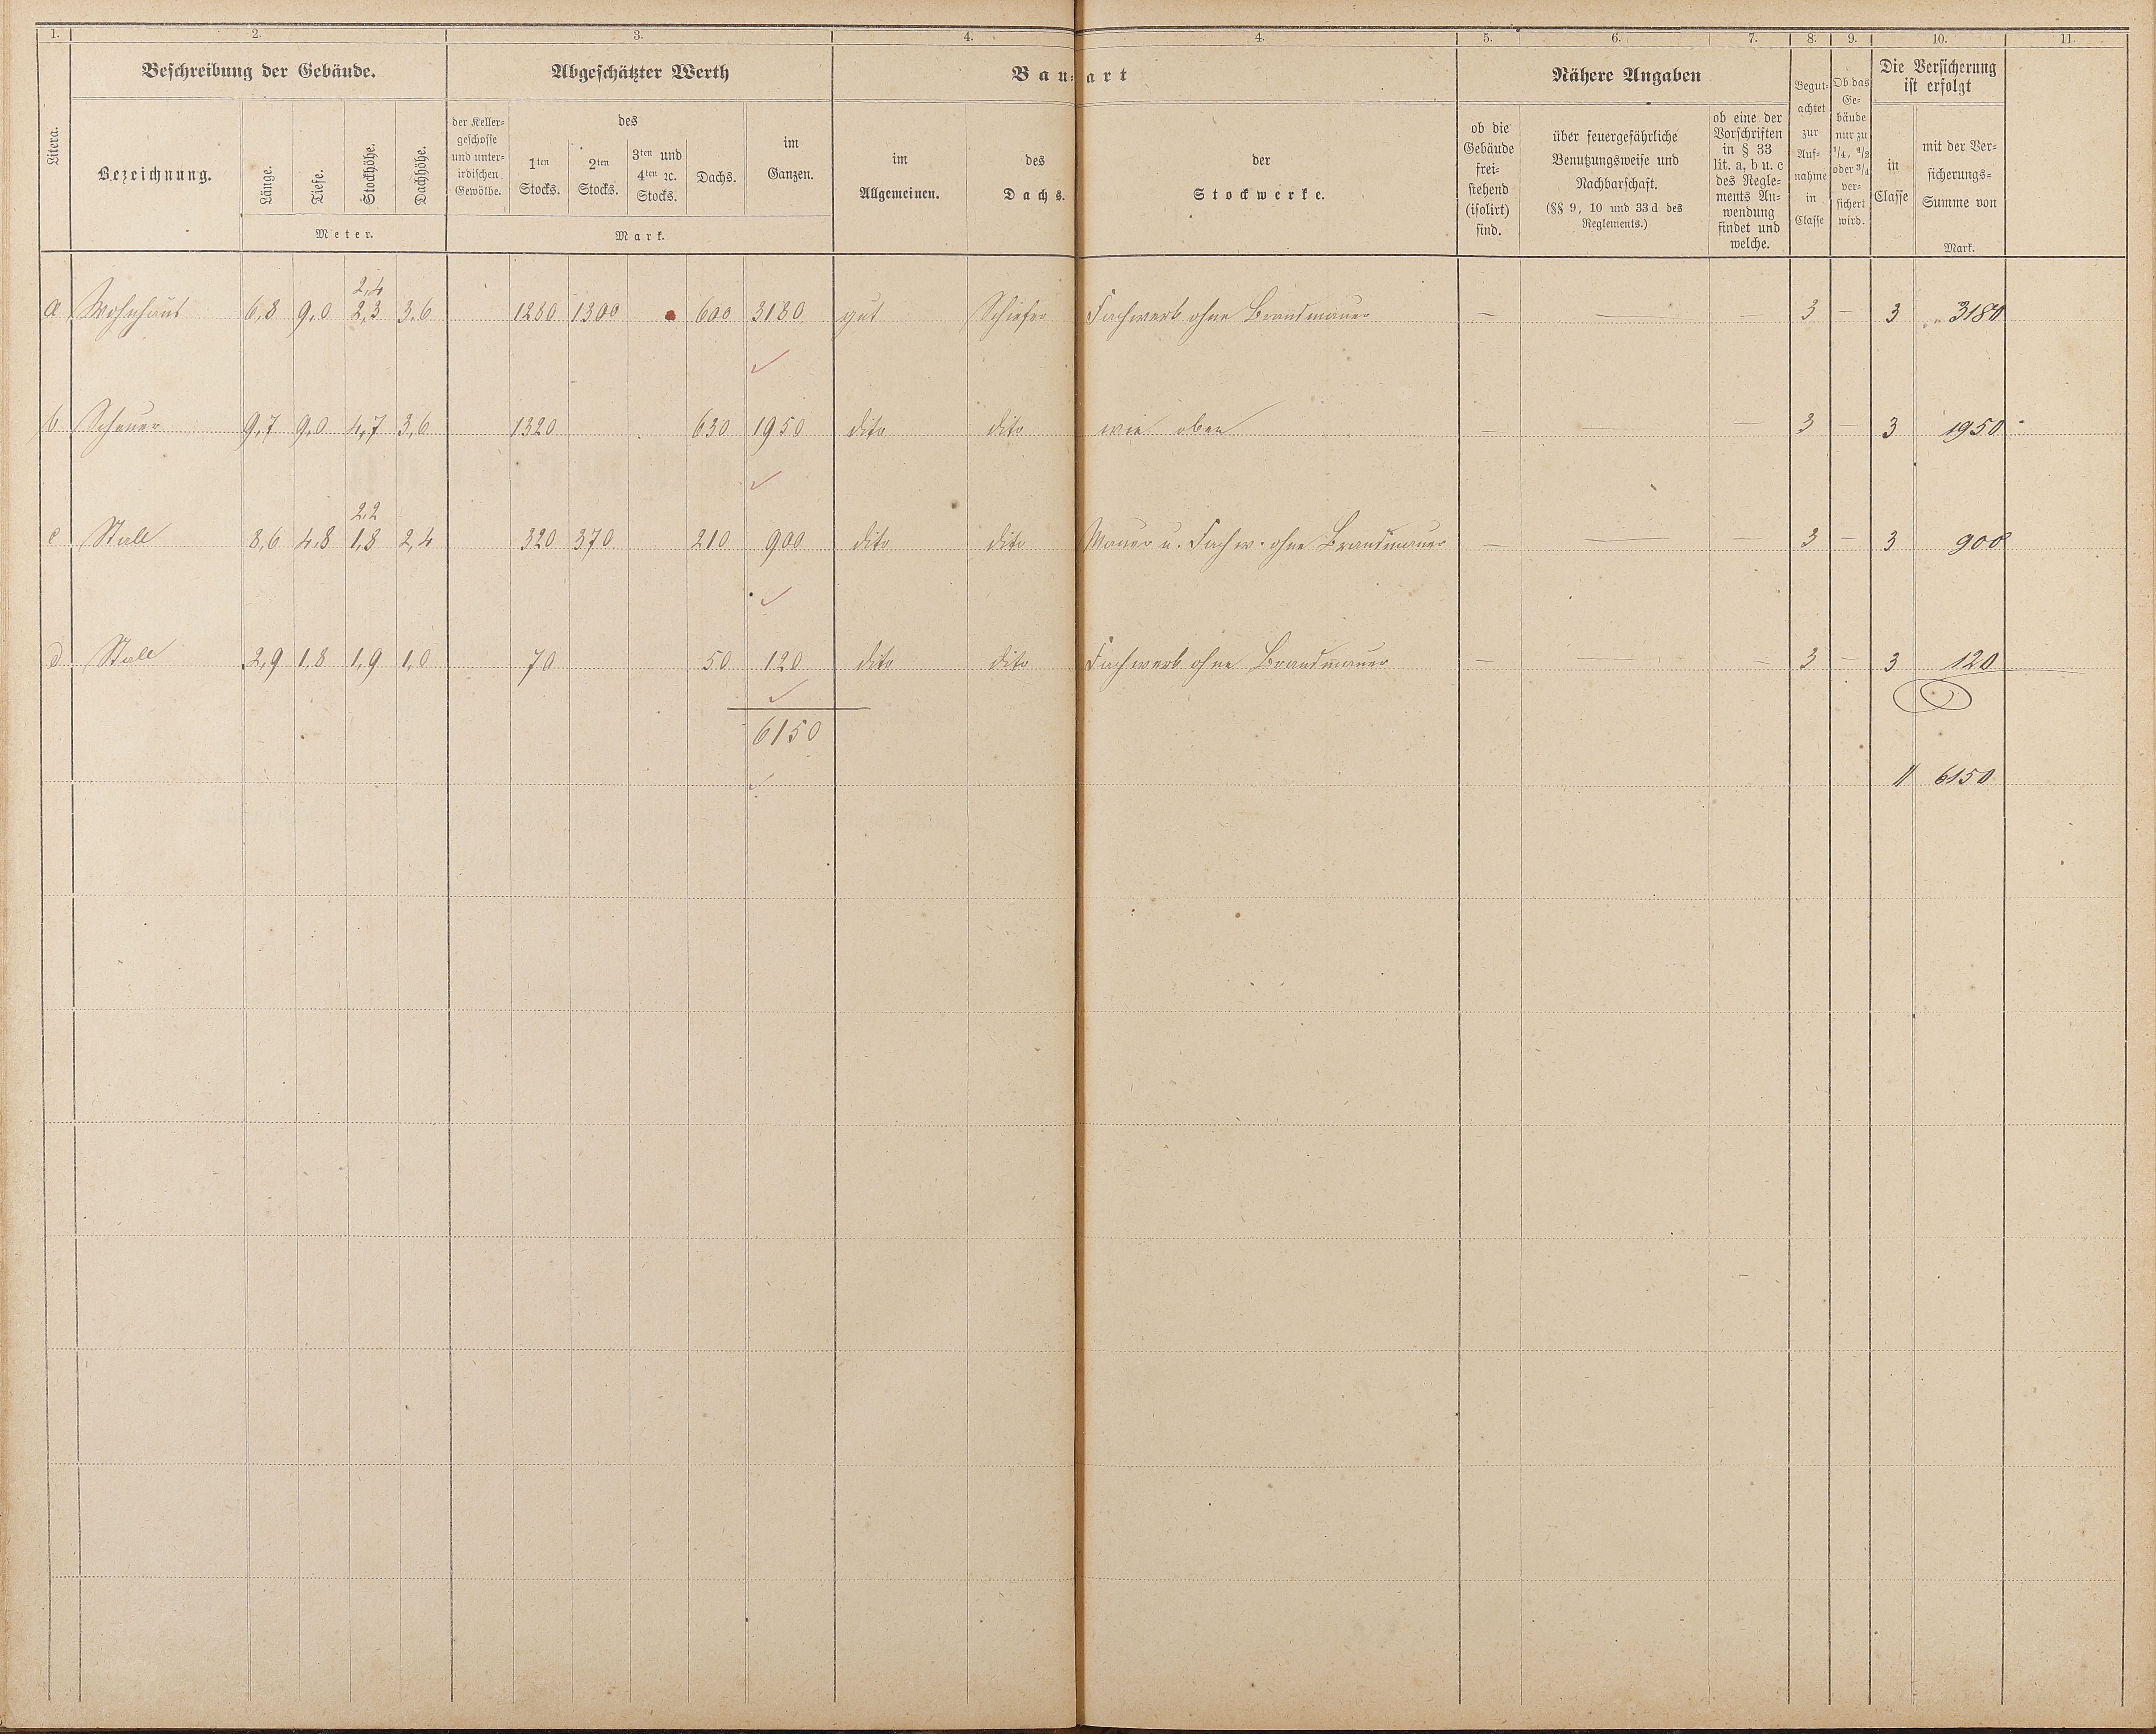 1. 2. 3. 4. 4. 5. 6. 7. 8. 9. 10. 11.
Litera.
Beschreibung der Gebäude.
Bezeichnung.
Länge. Tiefe. Stockhöhe. Dachhöhe.
Meter.
Abgeschätzter Werth
der Keller=
geschosse
und unter=
irdischen
Gewölbe.
des
1ten
Stocks.
2ten
Stocks.
3ten und
4ten ꝛc.
Stocks.
Dachs.
im
Ganzen.
Mark.
Bau=art
im
Allgemeinen.
des
Dachs.
der
Stockwerke.
Nähere Angaben
ob die
Gebäude
frei=
stehend
(isolirt)
sind.
über feuergefährliche
Benutzungsweise und
Nachbarschaft.
(§§ 9, 10 und 33 d des
Reglements.)
ob eine der
Vorschriften
in § 33
lit. a, b u. c
des Regle=
ments An=
wendung
findet und
welche.
Begut=
achtet
zur
Auf=
nahme
in
Classe
Ob das
Ge=
bäude
nur zu
1/4, 1/2
oder 3/4
ver=
sichert
wird.
Die Versicherung
ist erfolgt
in
Classe
mit der Ver=
sicherungs=
Summe von
Mark.
2,4
a Wohnhaus 6,8 9,0 2,3 3,6 1280 1300 600 3180 gut Schiefer Fachwerk ohne Brandmauer — — — 3 — 3 3180
b Scheuer 9,7 9,0 4,7 3,6 1320 630 1950 dito dito wie oben — — — 3 — 3 1950
2,2
c Stall 8,6 4,8 1,8 2,4 320 370 210 900 dito dito Mauer u. Fachw. ohne Brandmauer — — — 3 — 3 900
d Stall 2,9 1,8 1,9 1,0 70 50 120 dito dito Fachwerk ohne Brandmauer — — 3 — 3 120
6150
// 6150